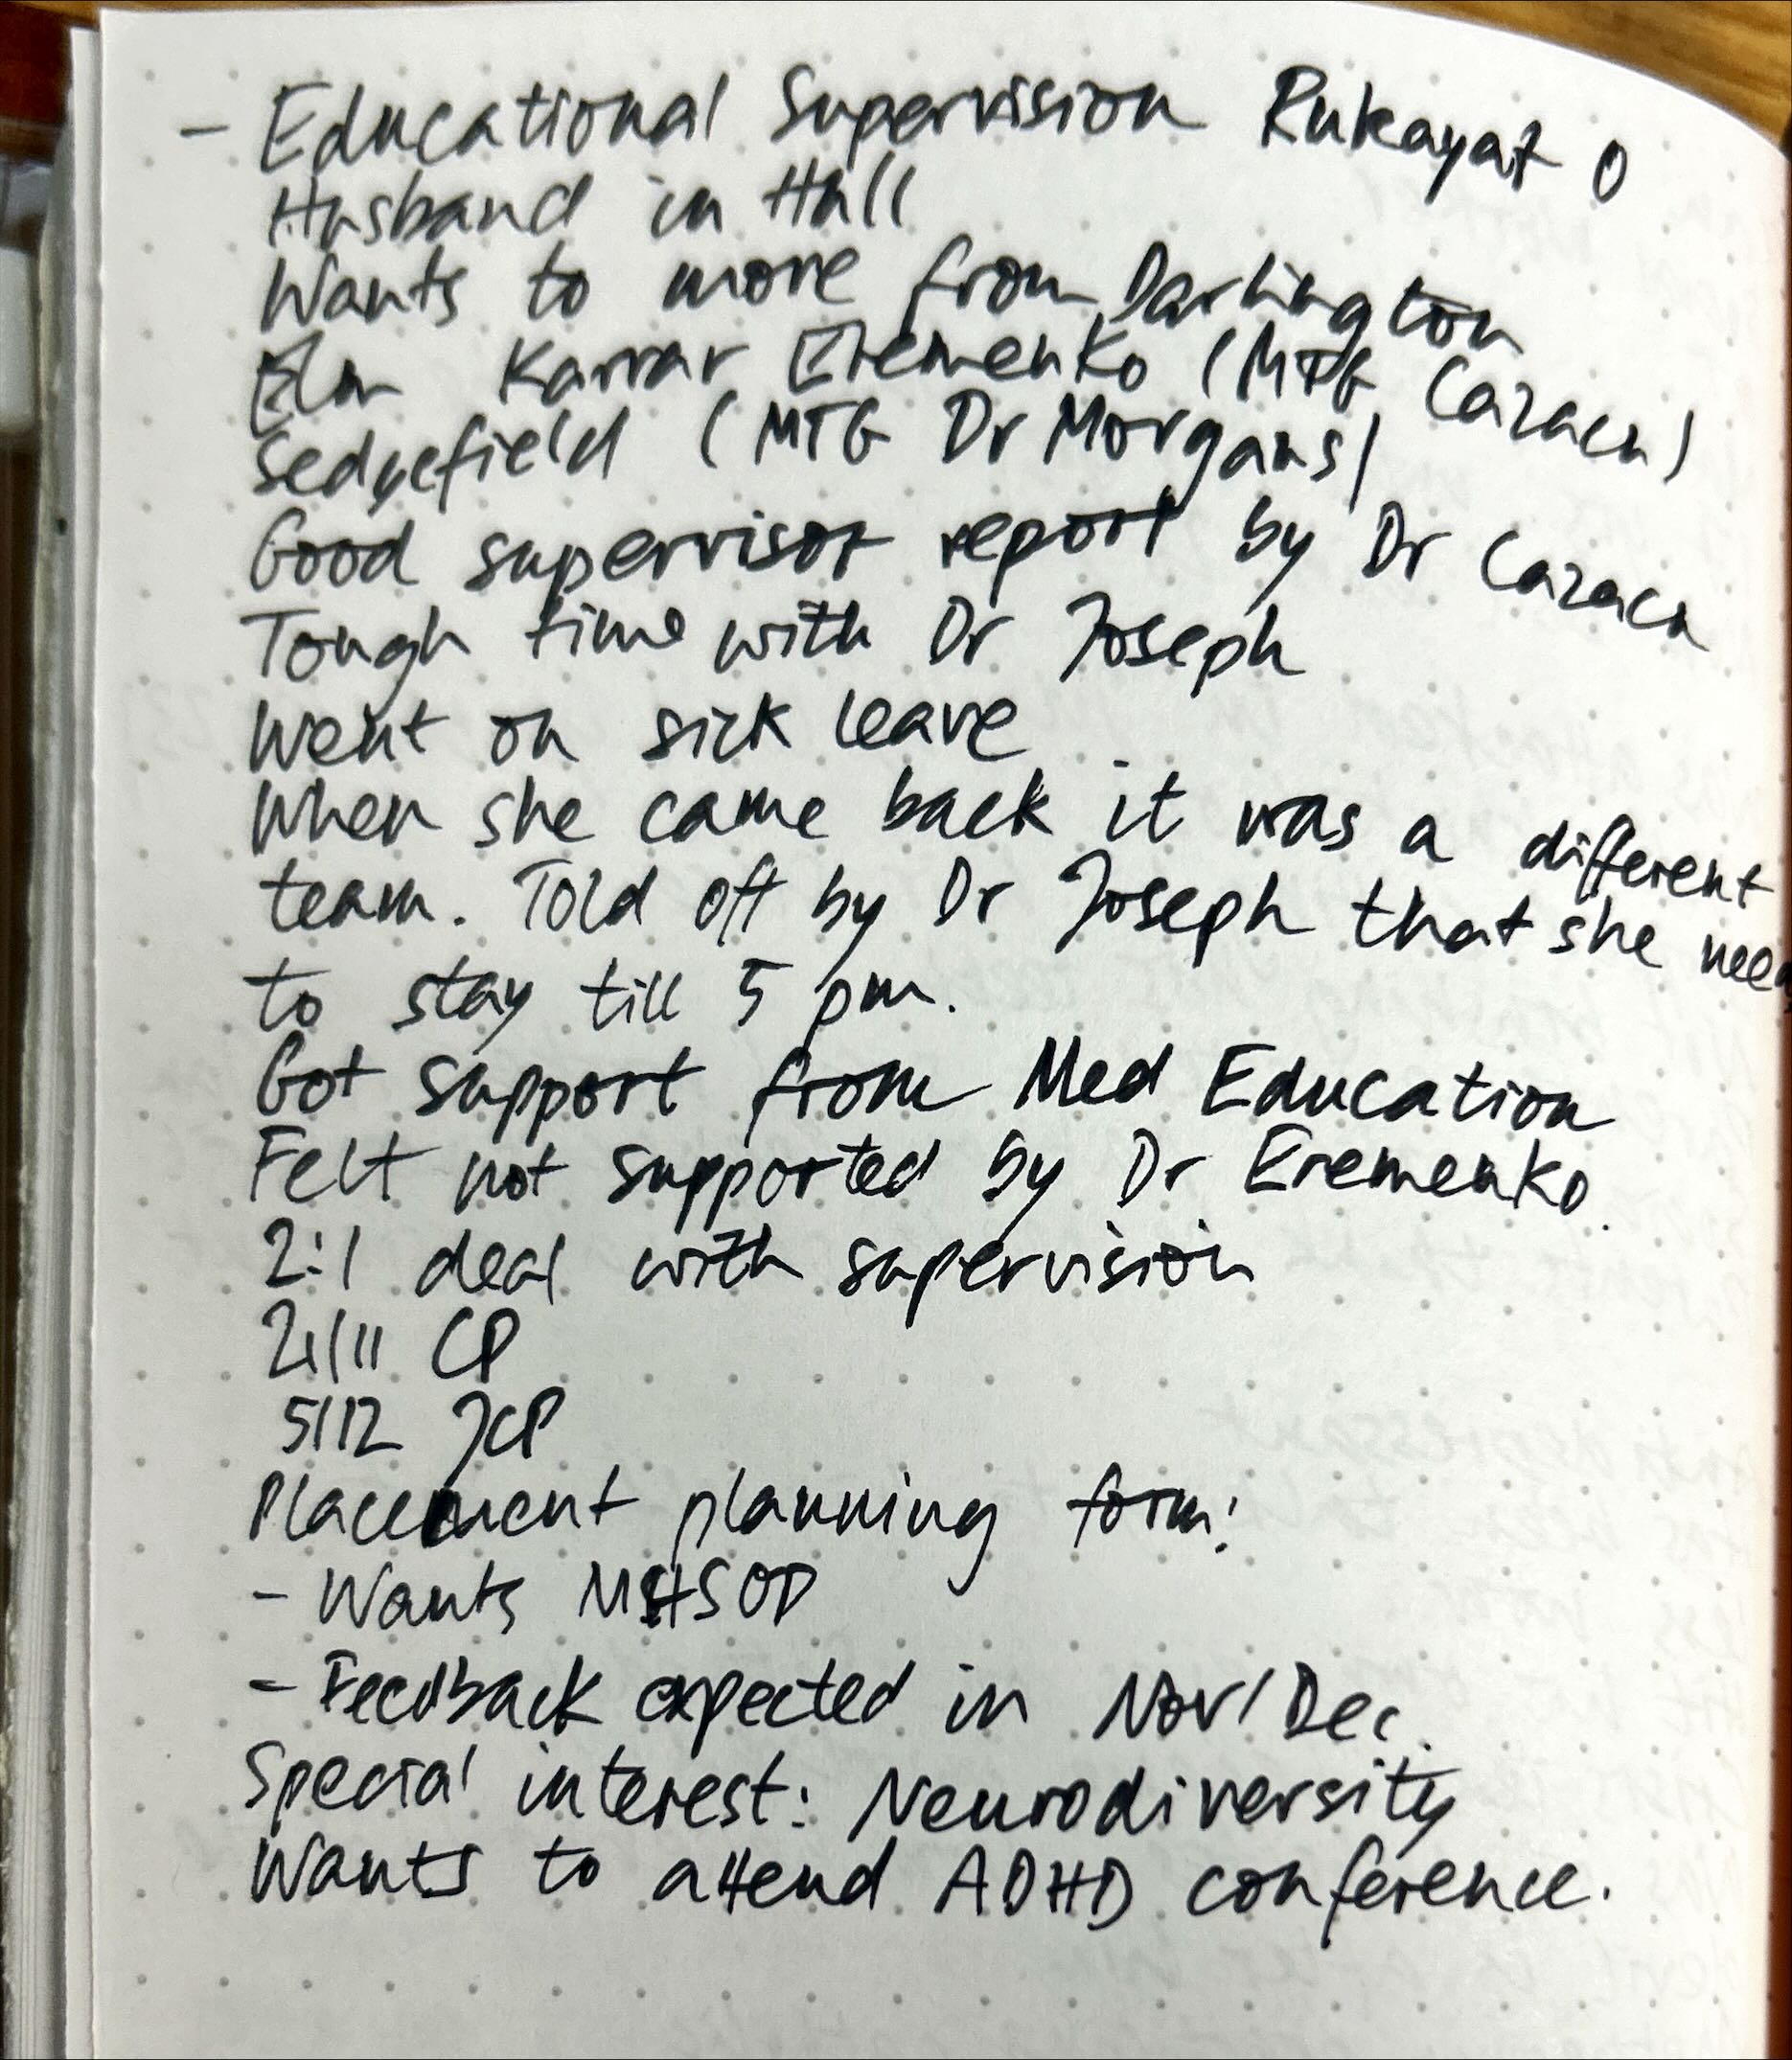 - Educational Supervision Rukayat O
Husband in Hull
Wants to move from Darlington
Elm Karrar Eremenko (MTG Cazacu)
Sedgefield (MTG Dr Morgans)
Good supervisor report by Dr Cazacu
Tough time with Dr Joseph
Went on sick leave
When she came back it was a different
team. Told off by Dr Joseph that she need
to stay till 5 pm.
Got support from Med Education
Felt not supported by Dr Eremenko.
2:1 deal with supervision
21/11 CP
5/12 JCP
Placement planning form:
- Wants MHSOP
- Feedback expected in Nov/Dec.
Special interest: Neurodiversity
Wants to attend ADHD conference.